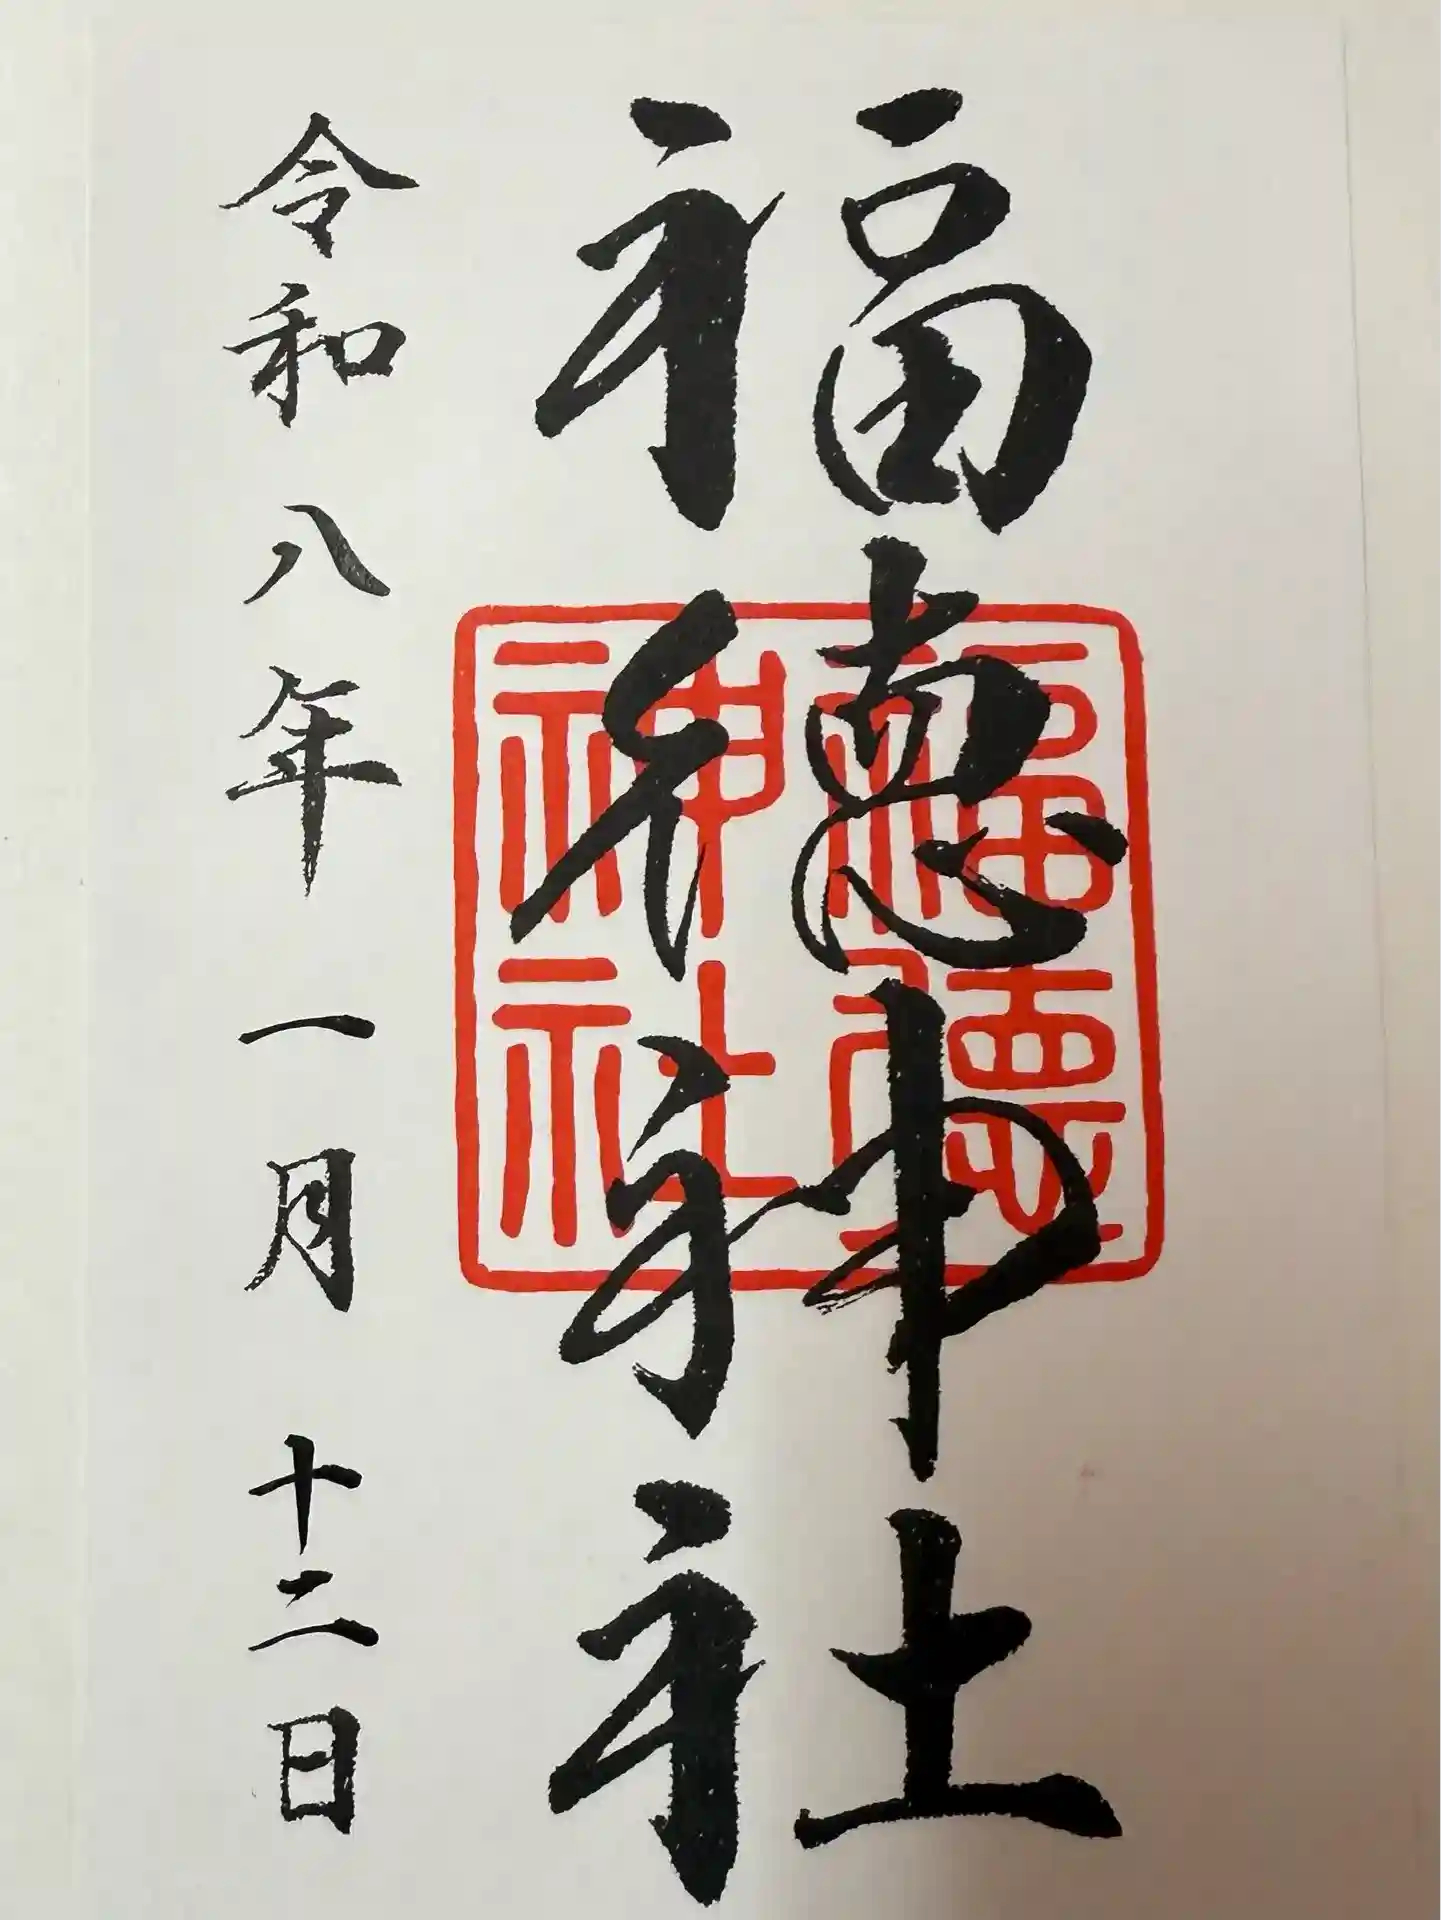 福徳神社
福徳神社
令和八年一月十二日